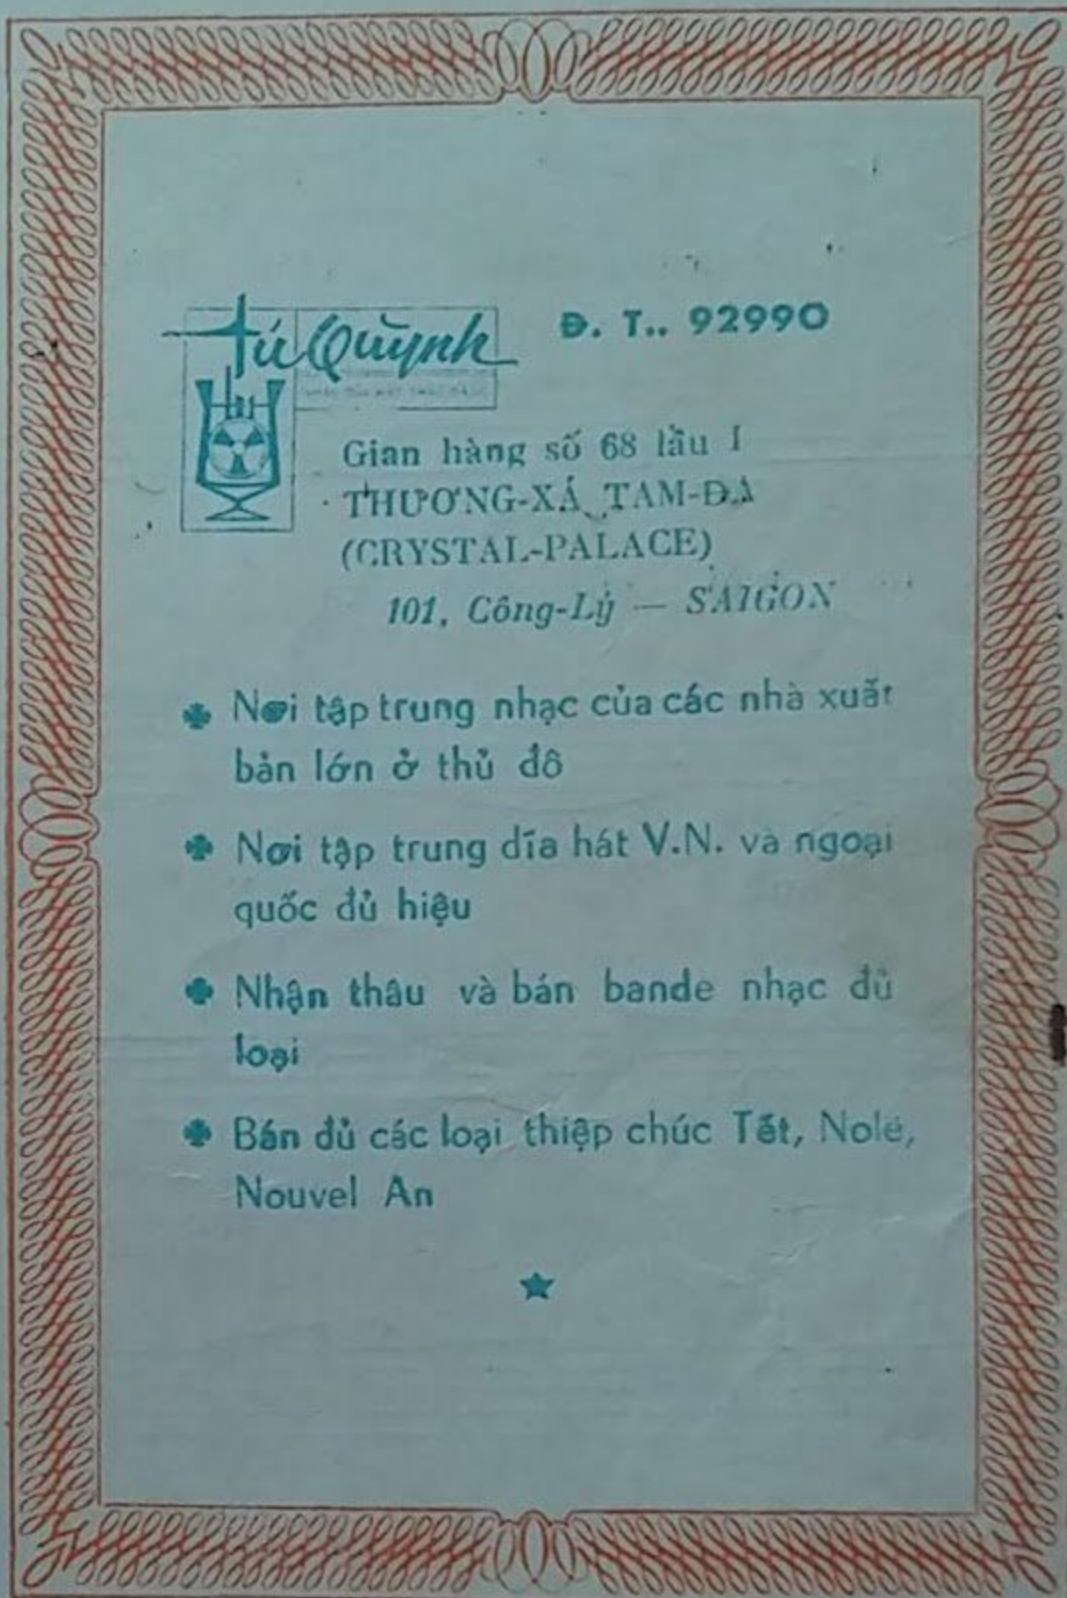 Tú Quỳnh
Đ. T.. 92990
Gian hàng số 68 lầu I
THƯƠNG-XÁ TAM-ĐA
(CRYSTAL-PALACE)
101, Công-Lý — SAIGON
Nơi tập trung nhạc của các nhà xuất
bản lớn ở thủ đô
Nơi tập trung dĩa hát V.N. và ngoại
quốc đủ hiệu
Nhận thâu và bán bande nhạc đủ
loại
Bán đủ các loại thiệp chúc Tết, Nolé,
Nouvel An